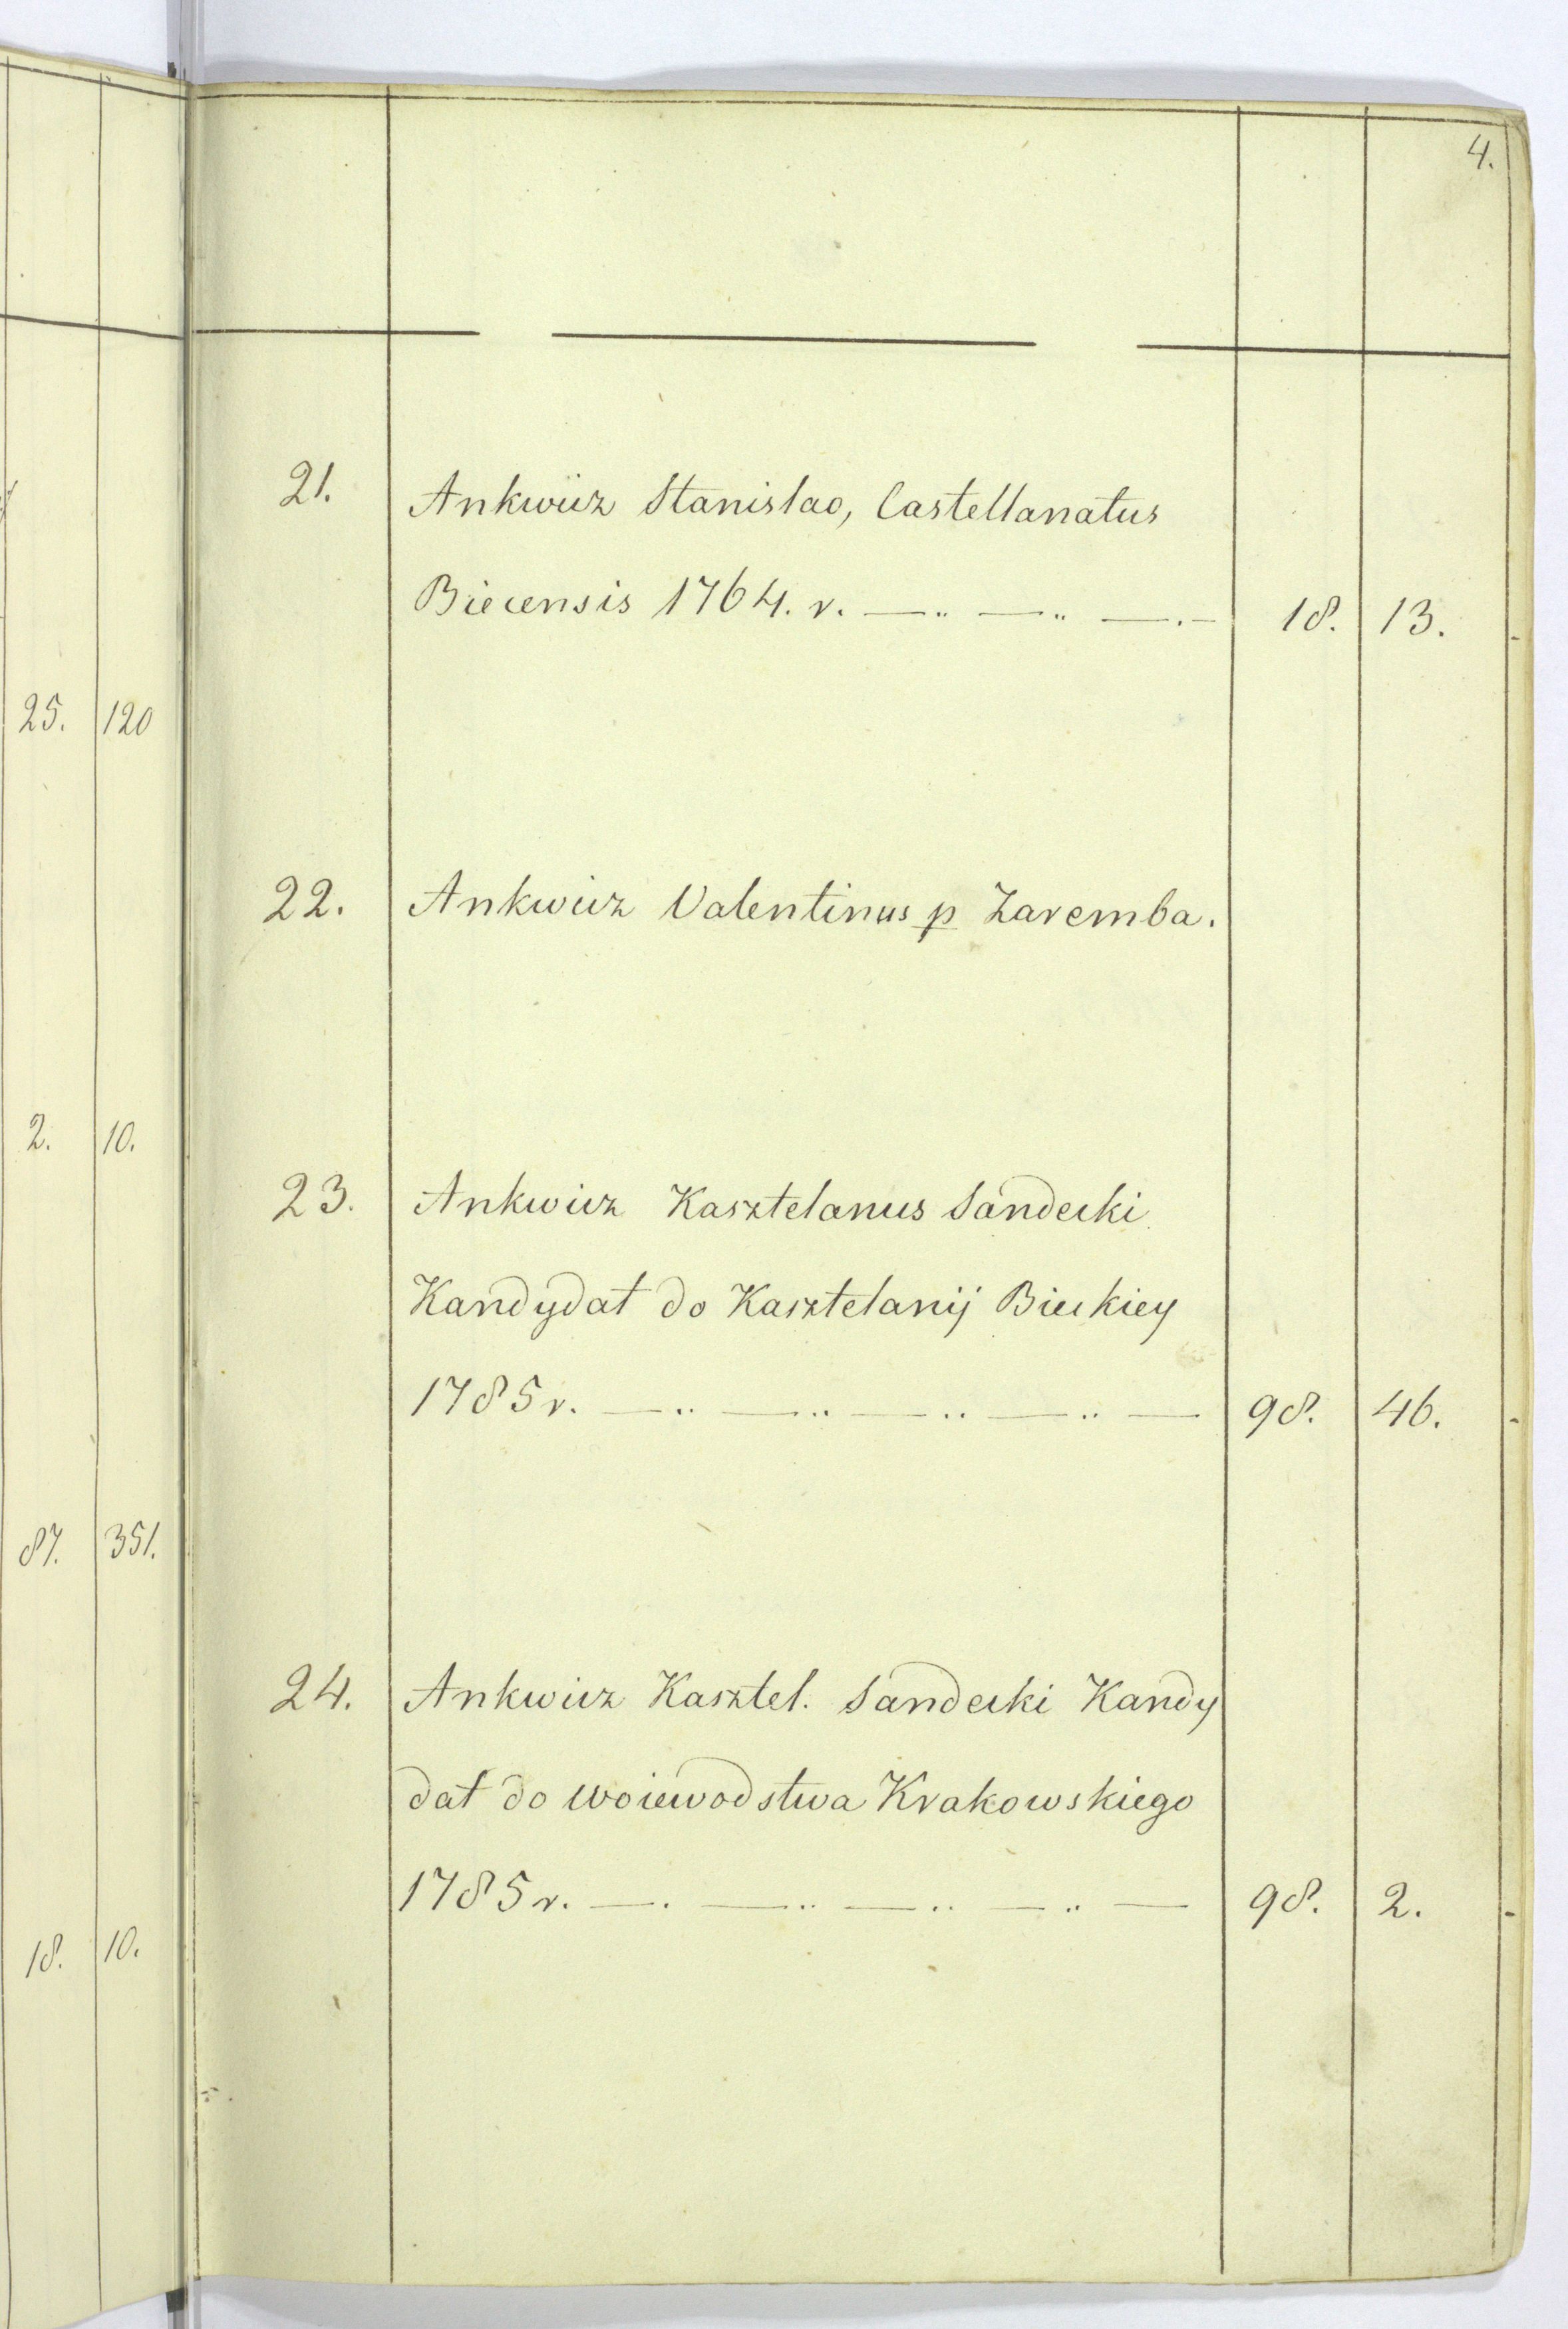 25. 120
2. 10.
87. 351.
18. 10.
4.
21. Ankwicz Stanislao, Castellanatus
Biecensis 1764. r. —..—..—.— 18. 13.
22. Ankwicz Valentinus p Zaremba.
23. Ankwicz Kasztelanus Sandecki
Kandydat do Kasztelanij Bieckiey
1785 r. —..—..—..—..— 98. 46.
24. Ankwicz Kasztel. Sandecki Kandy
dat do woiewodstwa Krakowskiego
1785 r. —.—..—..—..— 98. 2.